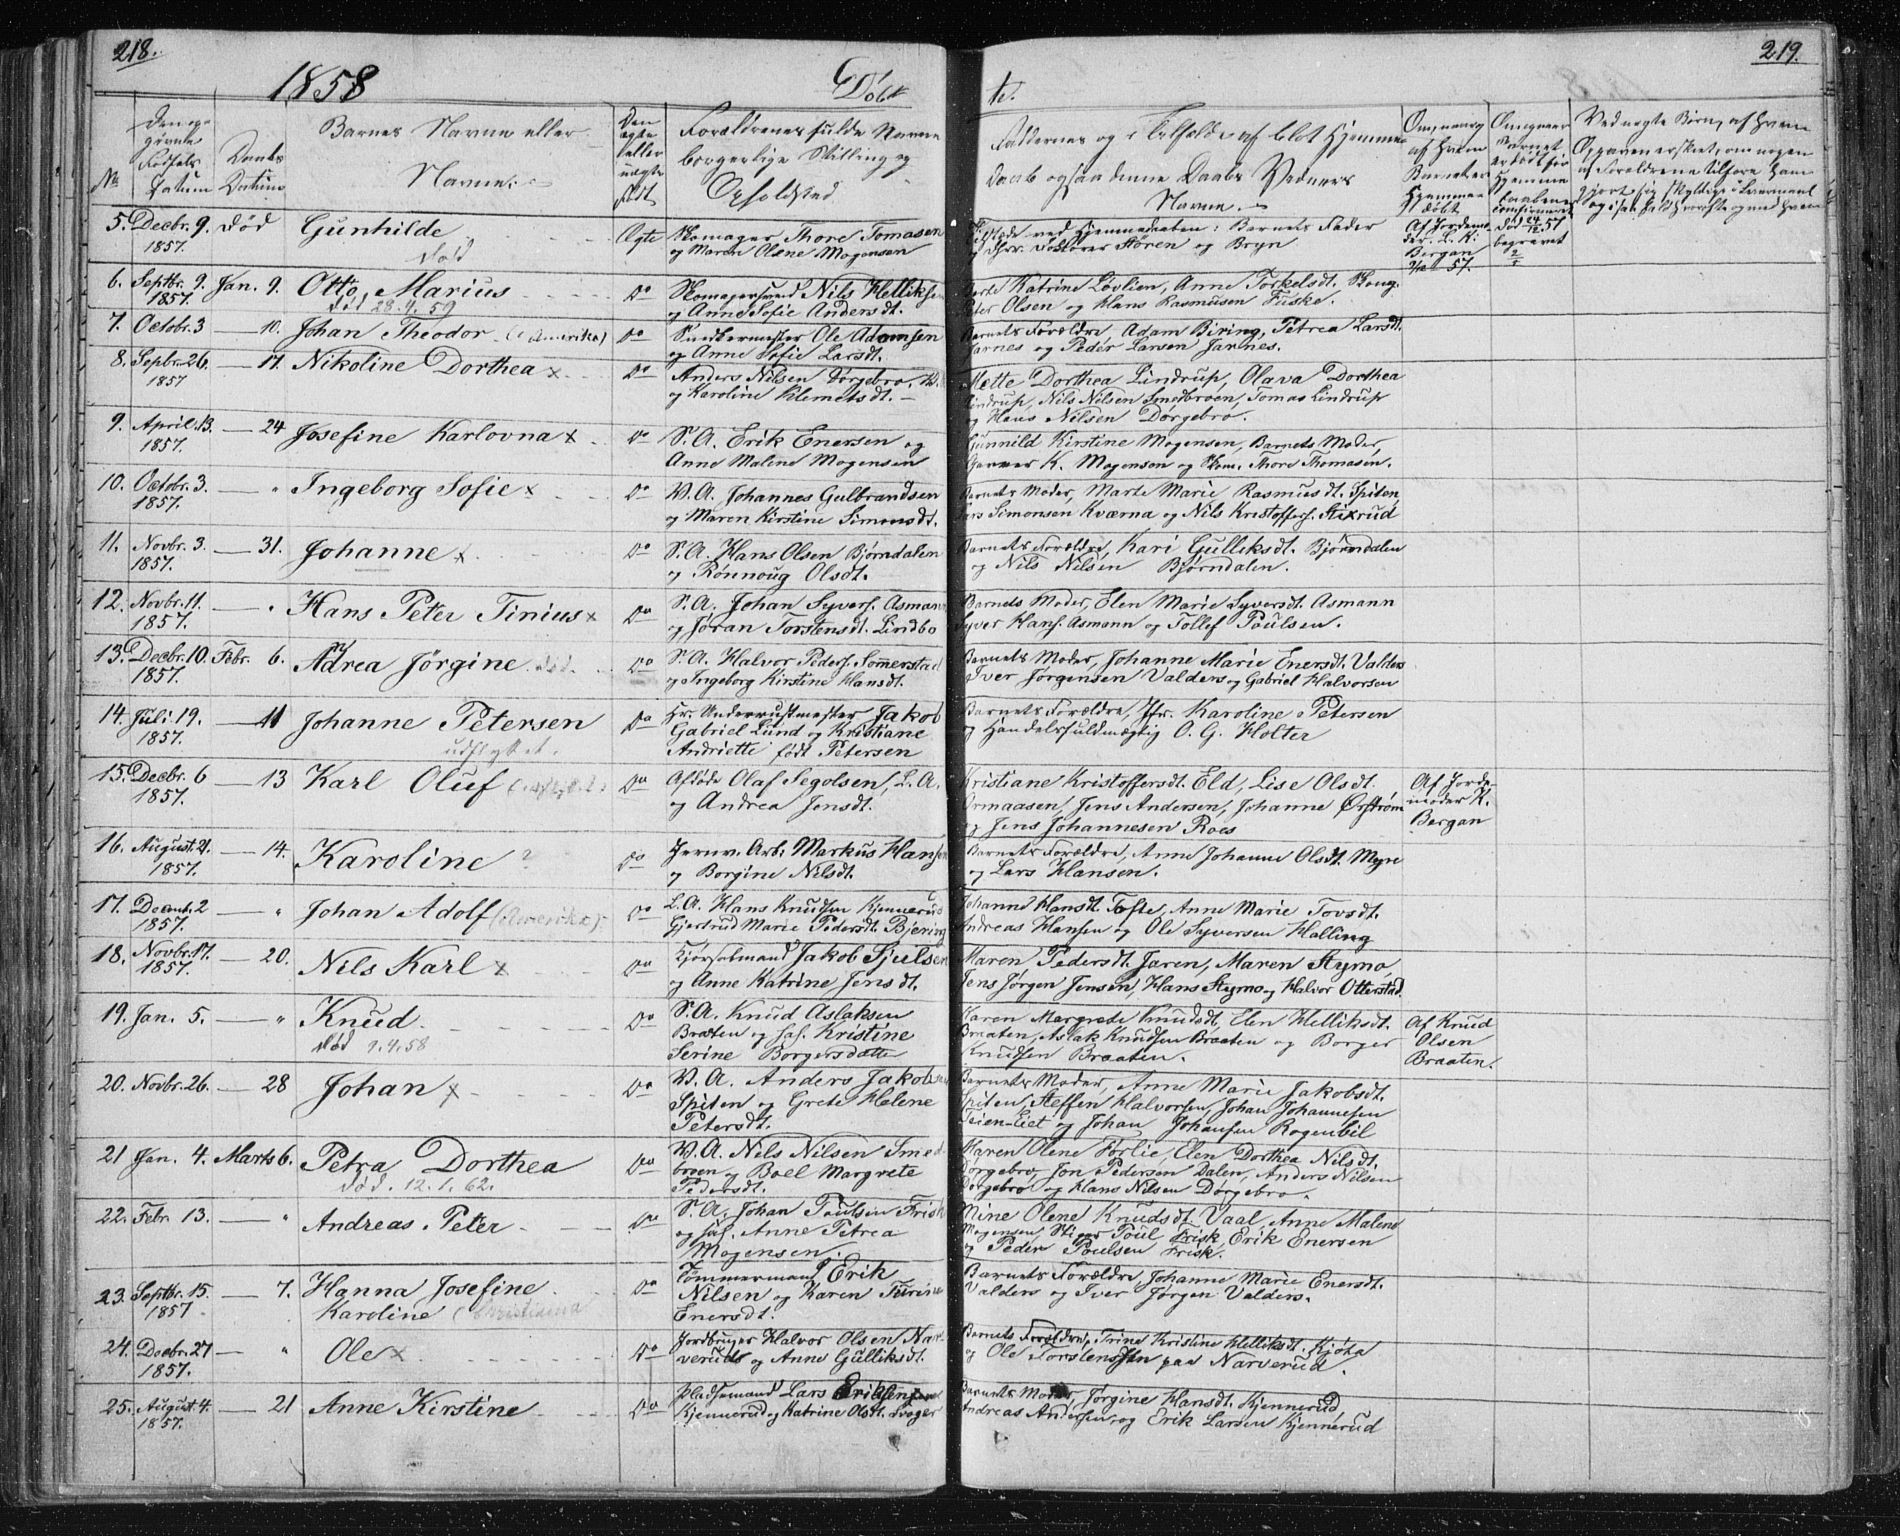 218.
1858
Døbte.
219.
No
Den opgivne Fødsels Datum
Daabs Datum
Barnes Navne eller Navne.
Den ægte eller uægte Født
Forældrenes fulde Navne borgerlige Stilling og Opholdsted
Faddernes og i Tilfælde af blot Hjemmedaab ogsaa denne Daabs Vidners Navne.
Om, naar og af hvem Barnet er Hjemmedøbt
5. Decbr. 9. 1857. død Gunhilde
død
Ægte
Skomager Thore Tomasen
og Maren Olene Mogensen
Tilstede ved Hjemmedaaben: Barnets Fader
og Hrr. Doktorer Støren og Bryn
Af Jordemoder L. K. Bergan 9/12 57.
død 24/12 57 begravet 2/1
6. Septbr. 9. 1857. Jan. 9. Otto Marius
død 28.4.59
Do
Skomagersvend Nils Helliksen
og Anne Sofie Andersdt.
Dorte Katrine Lövlien, Anne Torkelsdt. Skoug.
Peter Olsen og Hans Rasmusen Fuske.
7. Octobr. 3 — 10. Johan Theodor (Amerika)
Do
Snedkermester Ole Adamsen
og Anne Sofie Larsdt.
Barnets Forældre, Adam Biring, Petrea Larsdt.
Jarnes og Peder Larsen Jarnes.
8. Sepbr. 26. 1857 — 17. Nikoline Dorthea x
Do
Anders Nilsen Dørgebro,
og Karoline Klemetsdt. —
Mette Dorthea Lindrup, Olava Dorthea
Lindrup, Nils Nilsen Smedbroen, Tomas Lindrup
og Hans Nilsen Dørgebro.
9. April 13. 1857. — 24 Josefine Karlovna x
Do
S. A. Erik Enersen og
Anne Malene Mogensen
Gunnild Kirstine Mogensen, Barnets Moder,
K. Mogensen og Skom. Thore Thomasen.
10. Octobr. 3. 1857. — " Ingeborg Sofie x
Do
V. A. Johannes Gulbrandsen
og Maren Kirstine Simensdt.
Barnets Moder, Marte Marie Rasmusdt. Spiten,
Lars Simonsen Kværna og Nils Kristoffers. Stixrud
11. Novbr. 3. 1857. — 31. Johanne x
Do
S. A. Hans Olsen Bjørndalen
og Rønnoug Olsdt.
Barnets Forældre, Kari Gulliksdt. Bjørndalen
og Nils Nilsen Bjørndalen.
12. Novbr. 11. 1857. — " Hans Peter Tinius x
Do
S. A. Johan Syvers. Asmann
og Jøran Torstensdt. Lindbo
Barnets Moder, Elen Marie Syversdt. Asmann
Syver Hans. Asmann og Tollef Poulsen.
13. Decbr. 10. 1857. Febr. 6. Andrea Jörgine død.
Do
S. A. Halvor Peders. Sommerstad
og Ingeborg Kirstine Hansdt.
Barnets Moder, Johanne Marie Enersdt. Valders
Iver Jørgensen Valders og Gabriel Halvorsen
14. Juli 19. 1857. — 11 Johanne Petersen
udflyttet.
Do
Hr. Underrustmester Jakob
Gabriel Lund og Kristiane
Andriette født Petersen
Barnets Forældre, Jfr. Karoline Petersen
og Handelsfuldmægtig O. G. Holter
15. Decbr. 6 1857. — 13 Karl Oluf
Do
Afdøde Olaf Segolsen, L. A.
og Andrea Jensdt.
Kristiane Kristoffersdt. Eld, Lise Olsdt.
Ormaasen, Jens Andersen, Johanne Ørstrøm
og Jens Johannesen Roes
Af Jordemoder K. Bergan
16. August 21. 1857. — 14. Karoline ?
Do
Jernv. Arb. Markus Hansen
og Borgine Nilsdt.
Barnets Forældre, Anne Johanne Olsdt. Myre
og Lars Hansen.
17. Decemb. 2 1857. — " Johan Adolf (Amerika)
Do
L. A. Hans Knudsen Kjennerud
Gjertrud Marie Pedersdt. Bjering
Johanne Hansdt. Tofte, Anne Marie Tovsdt.
Andreas Hansen og Ole Syversen Halling
18. Novbr. 17. 1857. — 20. Nils Karl x
Do
Kjørselmand Jakob Sjulsen
og Anne Katrine Jensdt.
Maren Pedersdt. Jaren, Maren Stymo,
Jens Jörgen Jensen, Hans Stymo og Halvor Otterstad.
19. Jan. 5. — " Knud.
død 9.4.58
Do
S. A. Knud Aslaksen
Braaten og Kristine
Serine Borgersdatter
Karen Margrete Knudsdt, Elen Helliksdt.
Braaten, Aslak Knudsen Braaten og Borger
Knudsen Braaten.
Af Knud Olsen Braaten.
20. Novbr. 26. — 28 Johan x
Do
V. A. Anders Jakobsen
Spiten og Grete Helene
Petersdt.
Barnets Moder, Anne Marie Jakobsdt.
Spiten, Steffen Halvorsen, Johan Johannesen
Teien-Eiet og Johan Johansen Rogenbil
21 Jan. 4. Marts 6. Petra Dorthea
død. 12.1.62.
Do
V. A. Nels Nilsen Smedbroen
og Boel Margrete
Pedersdt.
Karen Olene Forlie, Elen Dorthea Nilsdt.
Dørgebro, Jon Pedersen Dalen, Anders Nilsen
Dørgebro og Hans Nilsen Dørgebro.
22. Febr. 13. — " Andreas Peter
Do
S. A. Johan Poulsen Frisk
og Anne Petrea
Mogensen.
Mine Olene Knudsdt. Vaal, Anne Malene
Mogensen, Poul Frisk, Erik Enersen
og Peder Poulsen Frisk.
23. Septbr. 15. 1857 — 7. Hanna Josefine
Karoline (Christiania
Do
Tømmermand Erik
Nilsen og Karen Turine
Enersdt.
Barnets Forældre, Johanne Marie Enersdt.
Valders og Iver Jørgen Valders.
24. Decbr. 27 1857. — " Ole x
Do
Jordbruger Halvor Olsen Narveruds
og Anne Gulliksdt.
Barnets Forældre, Trine Kristine Helliksdt. Kjöta
og Ole Torstensen paa Narverud.
25. August 4. 1857. — 21 Anne Kirstine
Do
Pladsemand Lars Eriksen
Kjennerud og Katrine Olsdt.
Barnets Moder, Jørgine Hansdt. Kjennerud,
Andreas Andersen og Erik Larsen Kjennerud